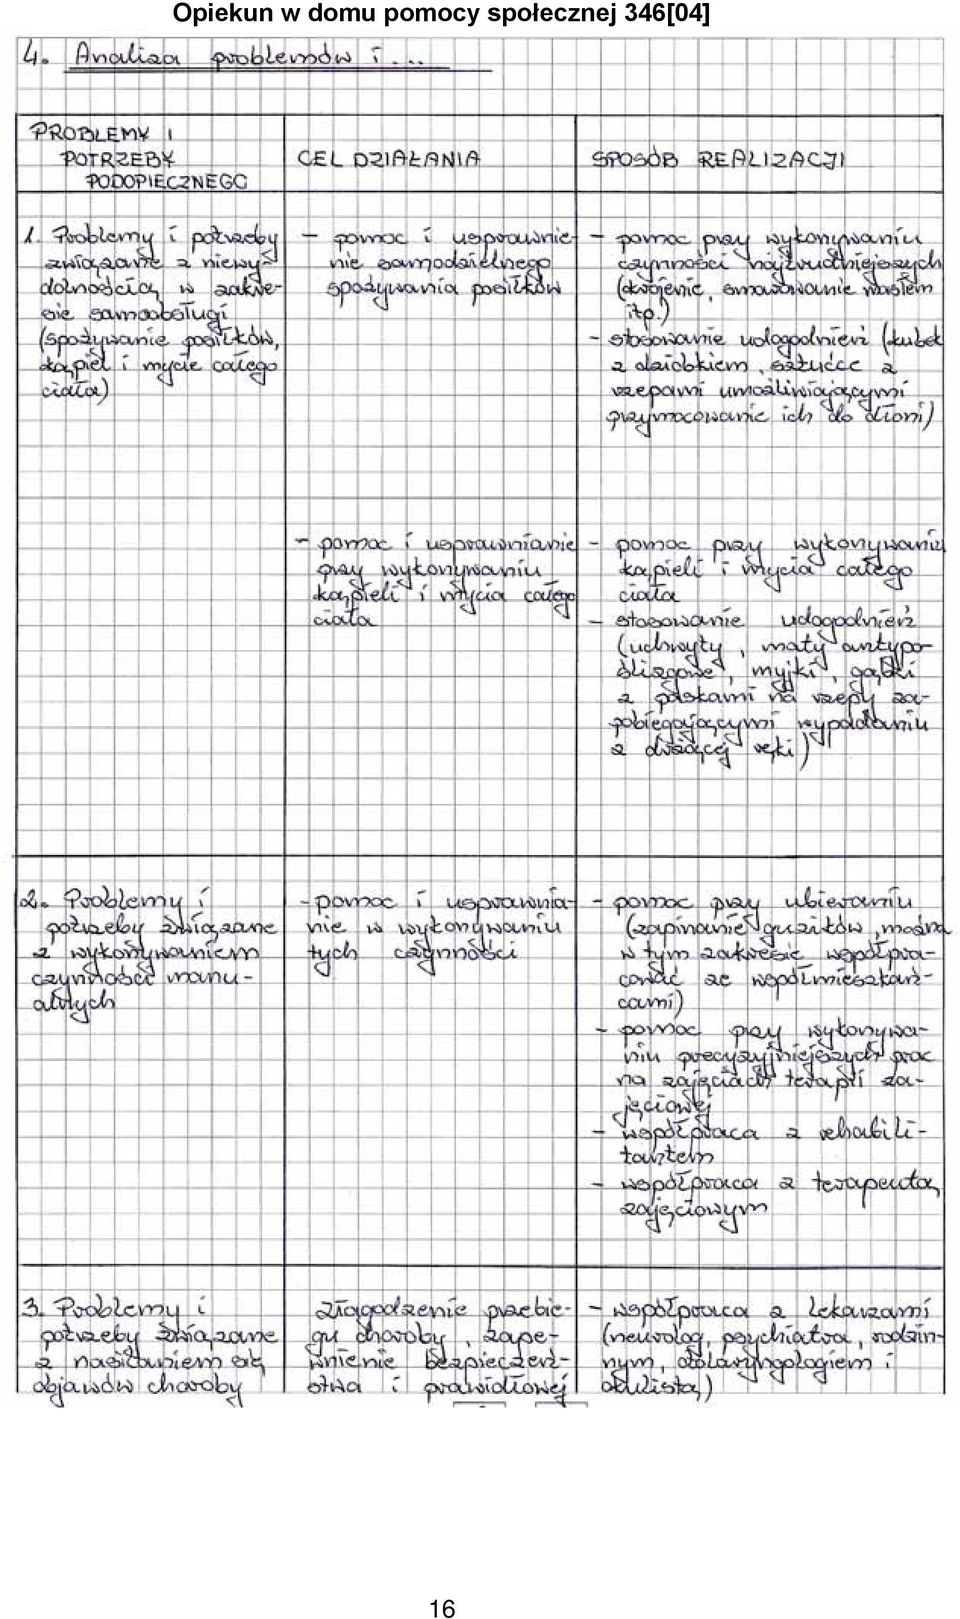 Opiekun w domu pomocy społecznej 346[04]
4. Analiza problemów i ...
PROBLEMY I
POTRZEBY
PODOPIECZNEGO
CEL DZIAŁANIA
SPOSÓB REALIZACJI
1. Problemy i potrzeby
związane z niewy-
dolnością w zakre-
sie samoobsługi
(spożywanie posiłków,
kąpiel i mycie całego
ciała)
- pomoc i usprawnie-
nie samodzielnego
spożywania posiłków
- pomoc przy wykonywaniu
czynności najtrudniejszych
(krojenie, smarowanie masłem
itp.)
- stosowanie udogodnień (kubek
z dziobkiem, sztućce z
rzepami umożliwiającymi
przymocowanie ich do dłoni)
- pomoc i usprawnianie
przy wykonywaniu
kąpieli i mycia całego
ciała
- pomoc przy wykonywaniu
kąpieli i mycia całego
ciała
- stosowanie udogodnień
(uchwyty, maty antypo-
ślizgowe, myjki, gąbki
z paskami na rzepy za-
pobiegającymi wypadaniu
z drżącej ręki)
2. Problemy i
potrzeby związane
z wykonywaniem
czynności manu-
alnych
- pomoc i usprawnia-
nie w wykonywaniu
tych czynności
- pomoc przy ubieraniu
(zapinanie guzików, można
w tym zakresie współpra-
cować ze współmieszkań-
cami)
- pomoc przy wykonywa-
niu precyzyjniejszych prac
na zajęciach terapii za-
jęciowej
- współpraca z rehabili-
tantem
- współpraca z terapeutą
zajęciowym
3. Problemy i
potrzeby związane
z nasilaniem się
objawów choroby
złagodzenie przebie-
gu choroby, zape-
wnienie bezpieczeń-
stwa i prawidłowej
- współpraca z lekarzami
(neurolog, psychiatra, rodzin-
nym, otolaryngologiem i
okulistą)
16